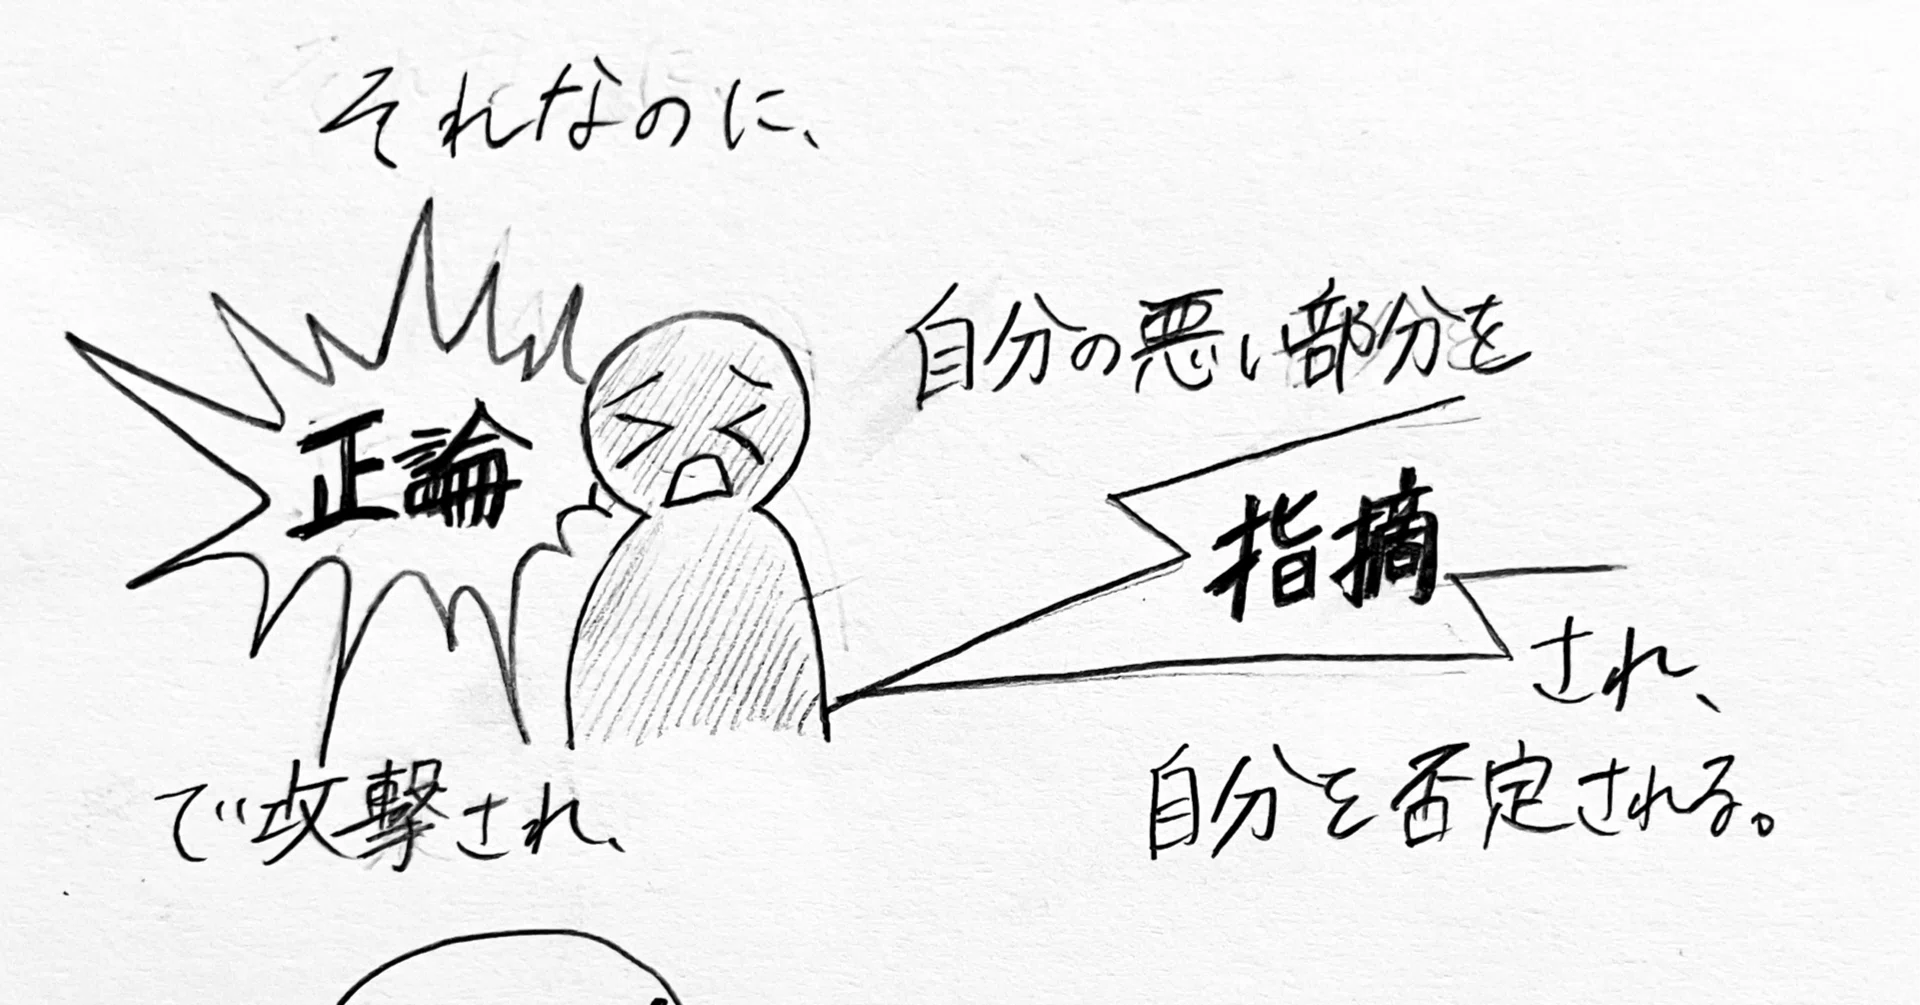 それなのに、
正論
で攻撃され、
自分の悪い部分を
指摘
され、
自分を否定される。